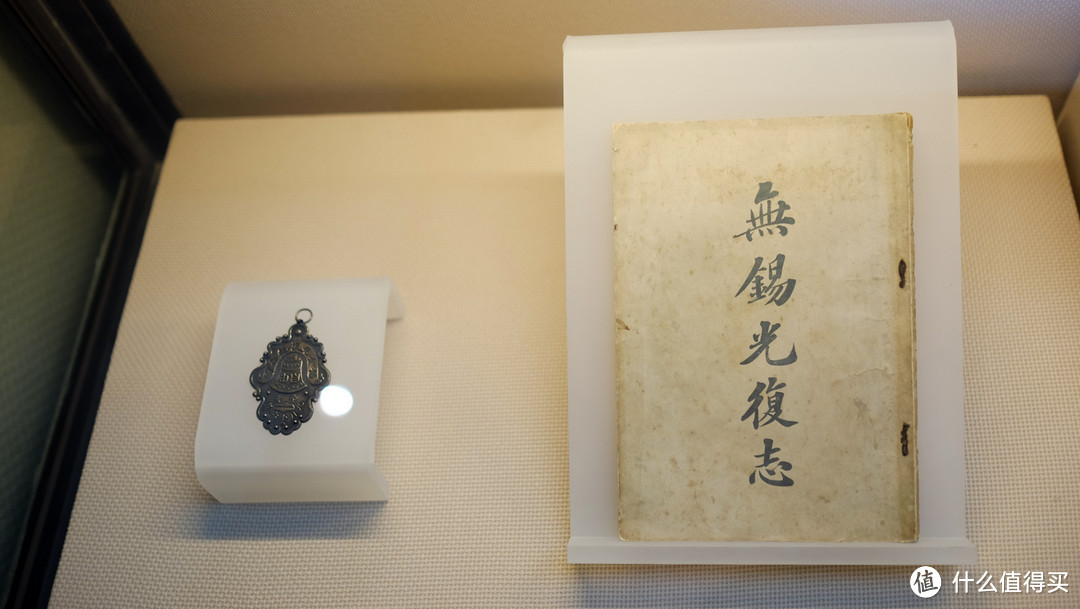 無錫光復志
值 什么值得买